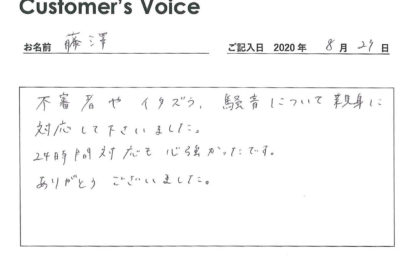 Customer's Voice
お名前 藤澤 ご記入日 2020年 8月29日
不審者や イタズラ、騒音について親身に
対応して下さいました。
24時間対応も心強かったです。
ありがとうございました。